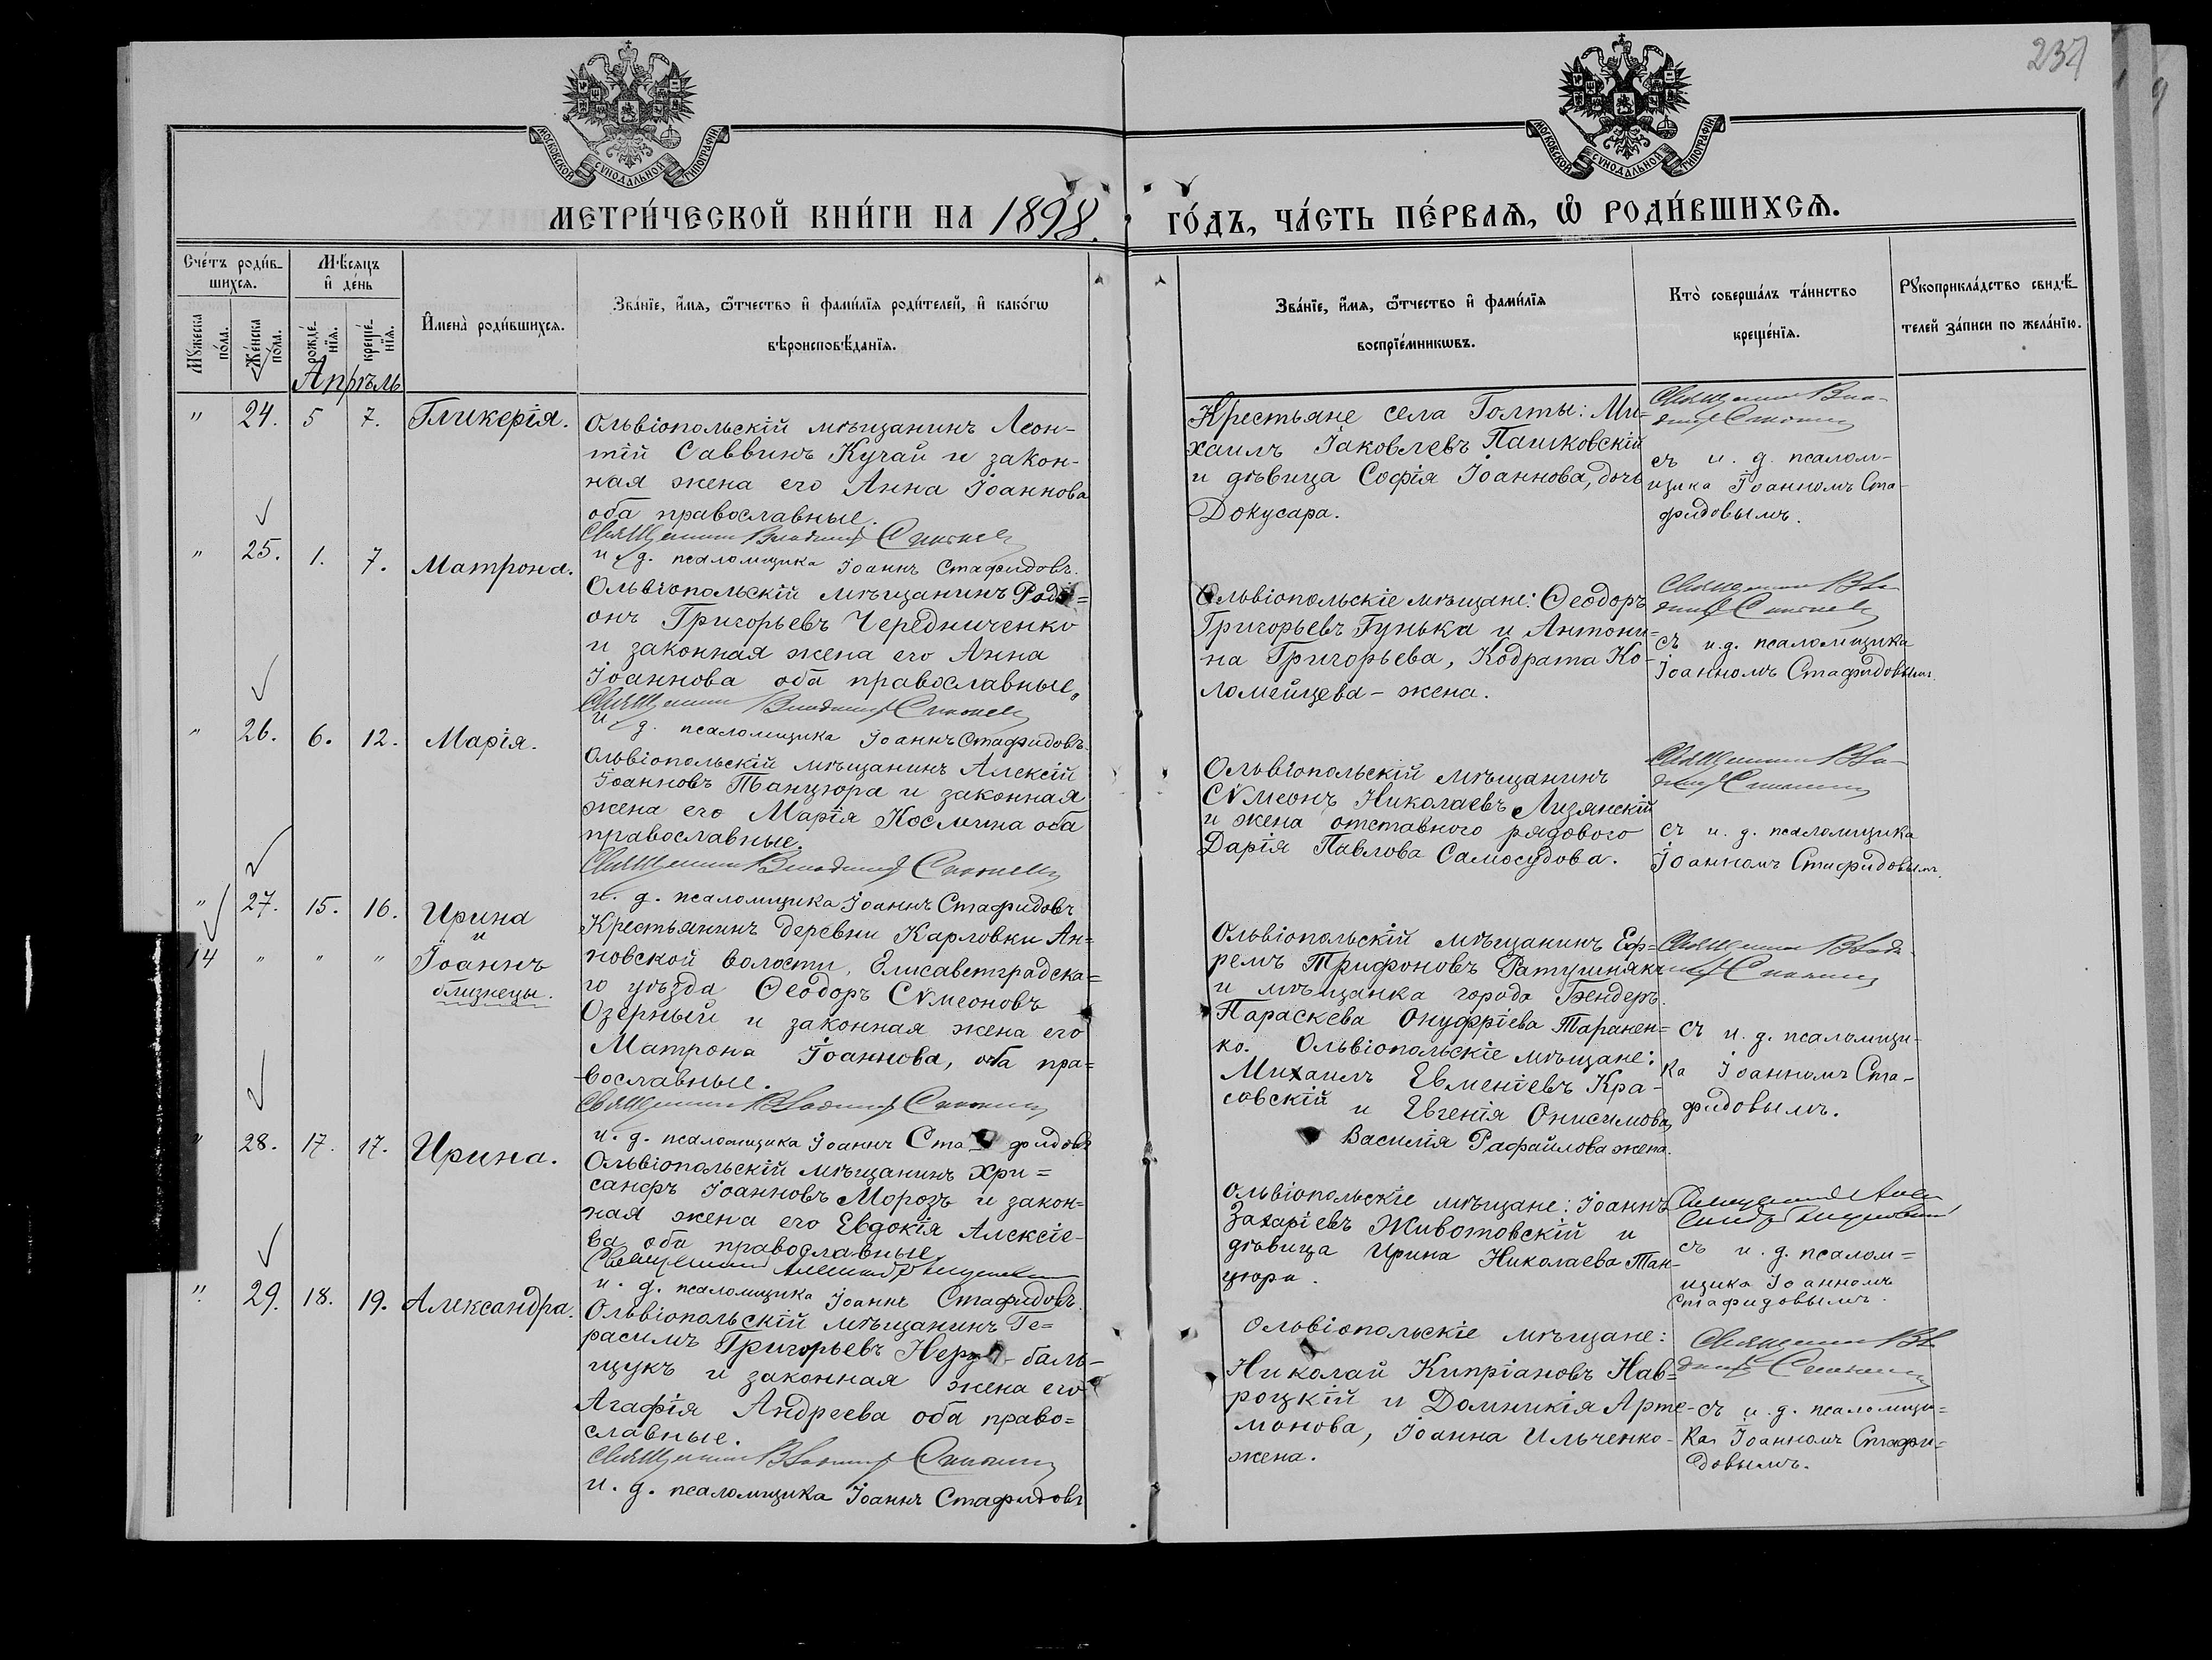 237
МОСКОВСКОЙ СѴНОДАЛЬНОЙ ТИПОГРАФІИ
МОСКОВСКОЙ СѴНОДАЛЬНОЙ ТИПОГРАФІИ
МЕТРИ́ЧЕСКОЙ КНИ́ГИ НА 1898.
ГО́ДЪ, ЧА́СТЬ ПЕ́РВАЯ, Ѽ РОДИ́ВШИХСЯ.
Сче́тъ роди́в-
шихся.
Мѣ́сяцъ
и҆ де́нь
Мꙋжеска
по́ла.
Же́нска
по́ла.
рожде́-
нїя.
креще́-
нїя.
И҆мена̀ роди́вшихся.
Зва́нїе, и҆́мя, ѻ҆́тчество и҆ фами́лїя роди́телей, и҆ како́гѡ
вѣроисповѣ́данїя.
Зва́нїе, и҆́мя, ѻ҆́тчество и҆ фами́лїя
воспрїе́мникѡвъ.
Кто̀ соверша́лъ та́инство
креще́нїя.
Рꙋкоприкла́дство свидѣ́-
телей за́писи по жела́нїю.
Апрѣль
" 24. 5 7. Гликерія.
Ольвіопольскій мѣщанинъ Леон-
тій Саввинъ Кучай и закон-
ная жена его Анна Іоаннова
оба православные.
Священникъ Владиміръ
и. д. псаломщика Іоаннъ Стафидовъ.
Крестьяне села Голты: Ми-
хаилъ Іаковлевъ Пашковскій
и дѣвица Софія Іоаннова, дочь
Докусара.
Священникъ Вла-
диміръ
съ и. д. псалом-
щика Іоанномъ Ста-
фидовымъ.
" 25. 1. 7. Матрона.
Ольвіопольскій мѣщанинъ Роді=
онъ Григорьевъ Чередниченко
и законная жена его Анна
Іоаннова оба православные.
Священникъ Владиміръ
и. д. псаломщика Іоаннъ Стафидовъ.
Ольвіопольскіе мѣщане: Ѳеодоръ
Григорьевъ Гунька и Антони=
на Григорьева, Кодрата Ко-
ломейцева - жена.
Священникъ Вла
диміръ
съ и.д. псаломщика
Іоанномъ Стафидовымъ.
" 26. 6. 12. Марія.
Ольвіопольскій мѣщанинъ Алексій
Іоанновъ Танцюра и законная
жена его Марія Космина оба
православные.
Священникъ Владиміръ
и. д. псаломщика Іоаннъ Стафидовъ
Ольвіопольскій мѣщанинъ
Сѵмеонъ Николаевъ Лизянскій
и жена отставного рядового
Дарія Павлова Самосудова.
Священникъ Вла-
диміръ
съ и. д. псаломщика
Іоанномъ Стафидовымъ.
" 27. 15. 16. Ирина
и
14 " " " Іоаннъ
близнецы.
Крестьянинъ деревни Карловки Ан=
новской волости, Елисаветградска=
го уѣзда Ѳеодоръ Сѵмеоновъ
Озерный и законная жена его
Матрона Іоаннова, оба пра=
вославные.
Священникъ Владиміръ
и. д. псаломщика Іоаннъ Стафидовъ
Ольвіопольскій мѣщанинъ Еф=
ремъ Трифоновъ Ратушнякъ
и мѣщанка города Бендеръ.
Параскева Онуфріева Таранен=
ко. Ольвіопольскіе мѣщане:
Михаилъ Евменіевъ Кра-
совскій и Евгенія Онисимова,
Василія Рафаилова жена.
Священникъ Влади
міръ
съ и. д. псаломщи-
ка Іоанномъ Ста-
фидовымъ.
" 28. 17. 17. Ирина.
Ольвіопольскій мѣщанинъ Хри=
санфъ Іоанновъ Морозъ и закон=
ная жена его Евдокія Алексіе-
ва оба православные.
Священникъ Александръ
и. д. псаломщика Іоаннъ Стафидовъ.
Ольвіопольскіе мѣщане: Іоаннъ
Захаріевъ Животовскій и
дѣвица Ирина Николаева Тан-
цюра.
Священникъ Алек
сандръ
съ и. д. псалом=
щика Іоанномъ
Стафидовымъ.
" 29. 18. 19. Александра.
Ольвіопольскій мѣщанинъ Ге=
расимъ Григорьевъ
щукъ и законная жена его
Агафія Андреева оба право=
славные.
Священникъ Владиміръ
и. д. псаломщика Іоаннъ Стафидовъ
Ольвіопольскіе мѣщане:
Николай Кипріановъ Нав=
роцкій и Домникія Арте-
монова, Іоанна Ильченко-
жена.
Священникъ Вла
диміръ
съ и. д. псаломщи=
ка Іоанномъ Стафи=
довымъ.